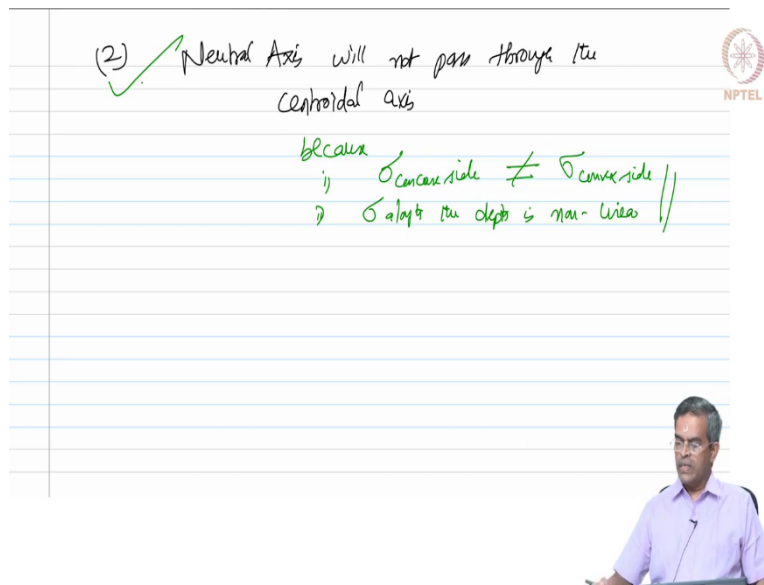 (2) Neutral Axis will not pass through the
NPTEL
centroidal axis
because
i) σ concave side ≠ σ convex side
i) σ along the depth is non-linear